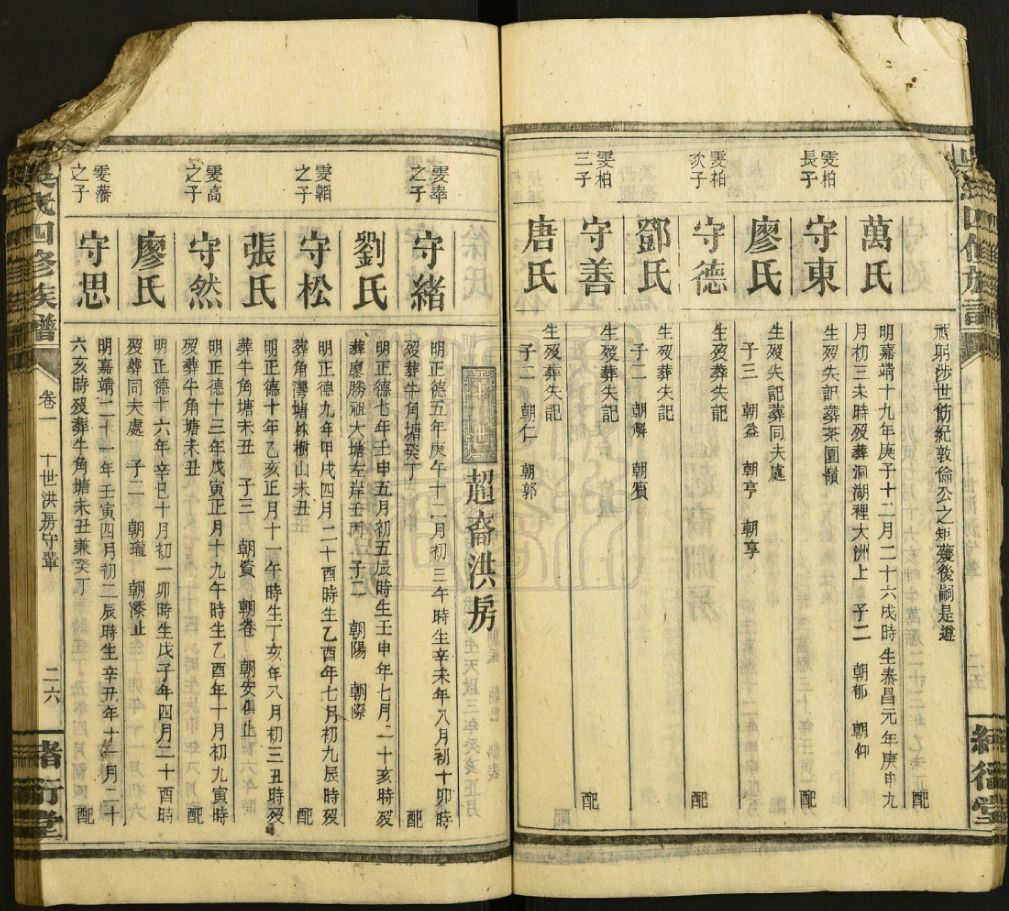 氏四修族譜
祇躬涉世飭紀敦倫公之矩薙後嗣是遵
配
萬氏
明嘉靖十九年庚子十二月二十六戌時生泰昌元年庚申九
月初三未時歿葬洞湖裡大洲上 子二 朝郁 朝仰
雯柏
長子
守東
生歿失記葬茶園嶺
配
廖氏
生歿失記葬同夫處
子三 朝益 朝亨 朝享
雯柏
次子
守德
生歿葬失記
配
鄧氏
生歿葬失記
子二 朝解 朝賓
雯柏
三子
守善
生歿葬失記
配
唐氏
生歿葬失記
子二 朝仁 朝郭
緒衍堂
十世
超裔洪房
雯奉
之子
守緒
明正德五年庚午十二月初三午時生辛未年八月初十卯時
歿葬牛角塘癸丁
配
劉氏
明正德七年壬申五月初五辰時生壬申年七月二十亥時歿
葬廖勝祖大塘左岸壬丙 子二 朝陽 朝際
雯韜
之子
守松
明正德九年甲戌四月二十酉時生乙酉年七月初九辰時歿
葬角灣塘株樹山未丑
配
張氏
明正德十年乙亥正月十一午時生丁亥年八月初三丑時歿
葬牛角塘未丑 子三 朝資 朝卷 朝安俱止
雯高
之子
守然
明正德十三年戊寅正月十九午時生乙酉年十月初九寅時
歿葬牛角塘未丑
配
廖氏
明正德十六年辛巳十月初一卯時生戊子年四月二十酉時
歿葬同夫處 子二 朝瓏 朝漆止
雯藩
之子
守思
明嘉靖二十一年壬寅四月初二辰時生辛丑年十一月二十
六亥時歿葬牛角塘未丑兼癸丁
配
氏四修族譜
卷一
十世洪房守輩
二六
緒衍堂